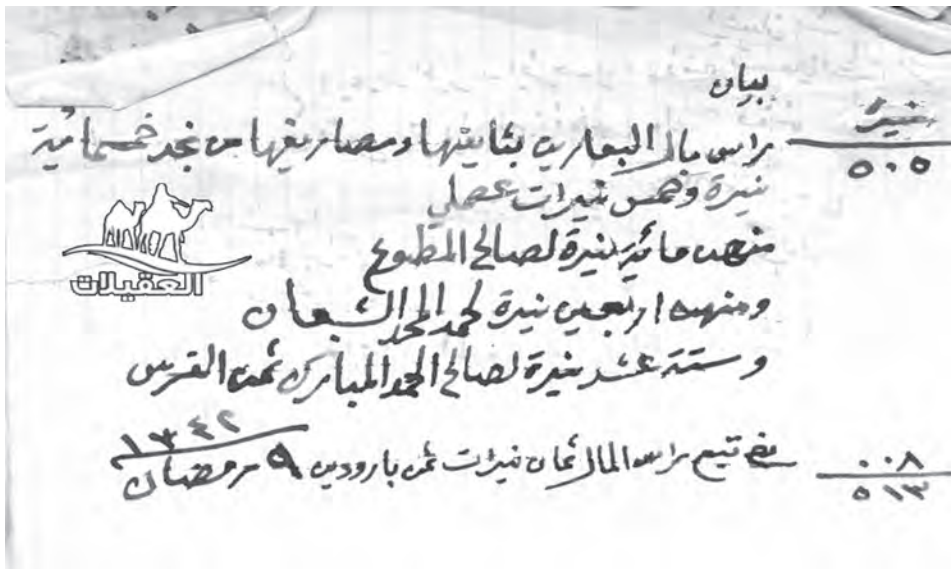 بيان
نيرة
٥٠٥
راس مال البعارين بثايتها ومصاريفها من نجد خمسمائة
نيرة وخمس نيرات عصملي
منهن مائة نيرة لصالح المطوع
ومنهن اربعين نيرة لحمد المحمد الشبعان
وستة عشر نيرة لصالح الحمد المبارك ثمن الفرس
٠٠٨
٥١٣
تبع راس المال ثمان نيرات ثمن بارودين ٩ رمضان ١٣٤٢
العقيلات